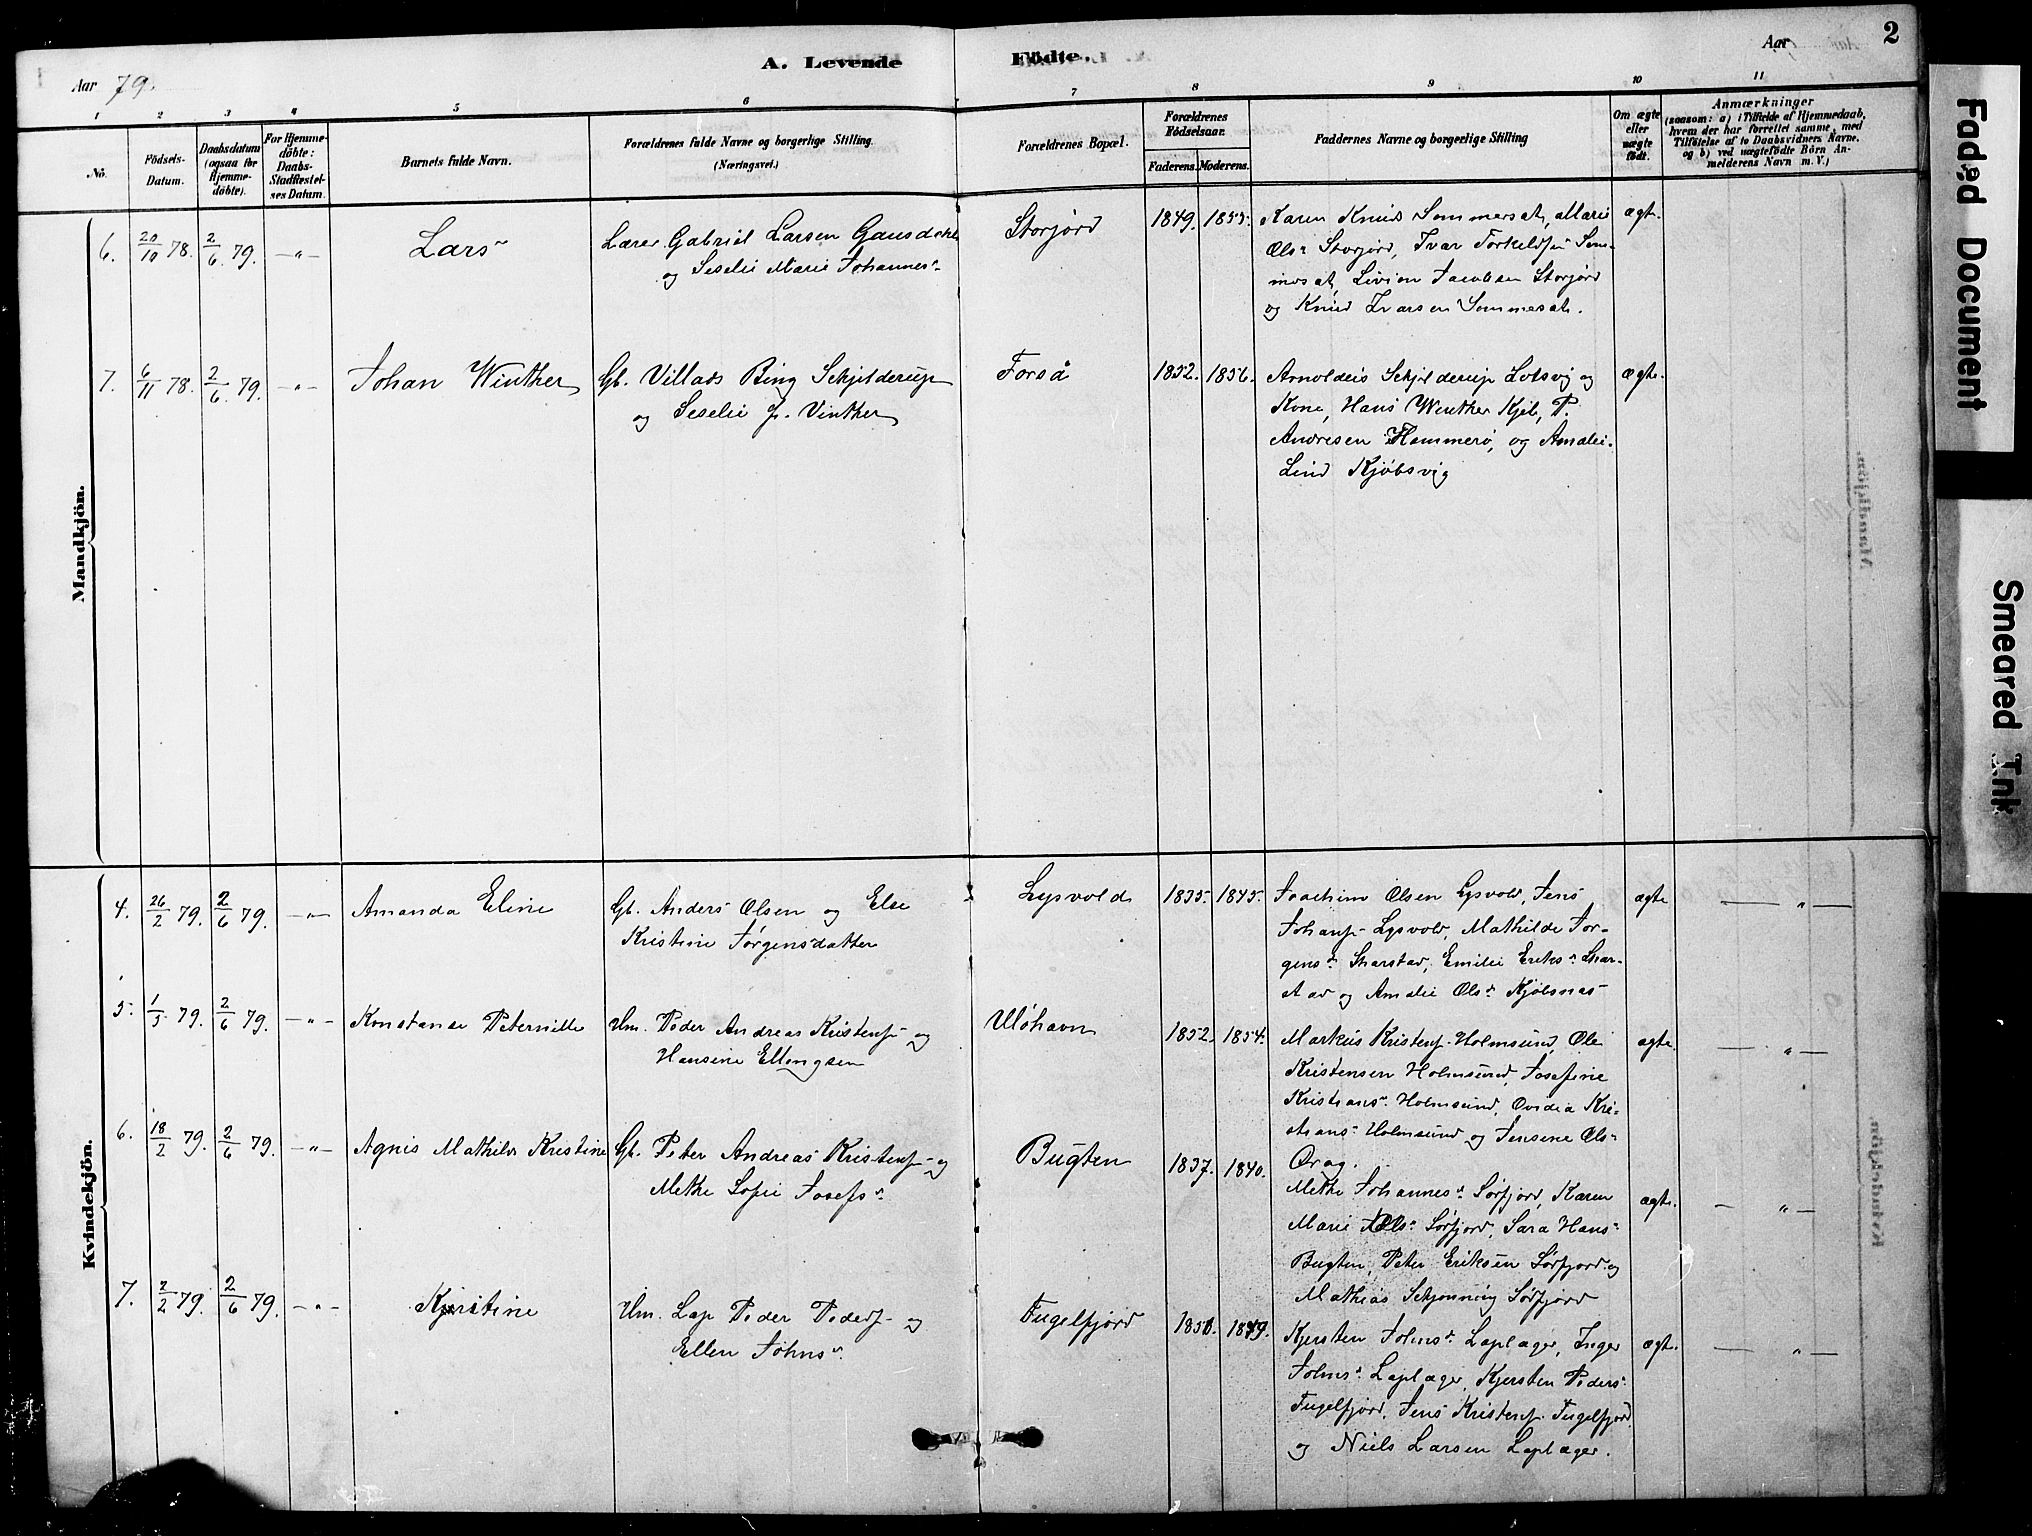 2
Aar 79.
A. Levende Födte.
Aar
1 2 3 4 5 6 7 8 9 10 11
No.
Födsels-Datum.
Daabsdatum (ogsaa for Hjemmedöbte).
For Hjemmedöbte: Daabs-Stadfæstelses Datum.
Barnets fulde Navn.
Forældrenes fulde Navne og borgerlige Stilling. (Næringsvei.)
Forældrenes Bopæl.
Forældrenes Födselsaar.
Faderens. Moderens.
Faddernes Navne og borgerlige Stilling
Om ægte eller uægte født.
Anmærkninger
(saasom: a) i Tilfælde af Hjemmedaab, hvem der har forrettet samme, med Tilföielse af to Daabsvidners Navne, og b) ved uægtefödte Börn Anmelderens Navn m. V.)
Mandkjön.
6. 20/10 78. 2/6 79. —„— Lars
Lærer Gabriel Larsen Gausdahl
og Seselie Marie Johannesd.
Storjord 1849. 1855.
Karen Knuds Sommerset, Marie
Olsd. Storjord, Ivar Torkeldsen Som-
merset, Livion Jacobsen Storjord
og Knud Ivarsen Sommerset.
ægt.
7. 6/11 78. 2/6 79. —„— Johan Winther
Gb. Villads Bing Schjelderup
og Seselie f. Vinther
Forså 1852. 1856.
Arnoldus Schjelderup Lotsvig og
Kone, Hans Winther Kjeb, P.
Andresen Hammerö, og Amalie
Lind Kjöbsvig
ægte.
Kvindekjön.
4. 26/2 79. 2/6 79. —„— Amanda Eline
Gb. Anders Olsen og Else
Kristine Jörgensdatter
Lysvold 1835. 1845.
Joachim Olsen Lysvold, Jens
Johans. Lysvold, Mathilde Jör-
gensd. Skarstad, Emilie Eriksd. Skar-
stad og Amalie Olsd. Kjöbsnæs
ægte — „ —
5. 1/3 79. 2/6 79. —„— Konstanse Peternille
Hm. Peder Andreas Kristens. og
Hansine Ellingsen
Ulöhavn 1852. 1854.
Markus Kristens. Holmsund, Ole
Kristensen Holmsund, Josefine
Kristiansd. Holmsund, Ovidia Kri-
stiansd. Holmsund og Jensine Olsd.
Drag.
ægte. — „ —
6. 18/2 79. 2/6 79. —„— Agnis Mathilde Kristine
Gb. Peter Andreas Kristens. og
Methe Sofie Josefsd.
Bugten 1837. 1840.
Methe Johannesd. Sörfjord, Karen
Marie Olsd. Sörfjord, Sara Hansd.
Bugten, Peter Eriksen Sörfjord og
Mathias Schjonning Sörfjord
ægte. — „ —
7. 2/2 79. 2/6 79. —„— Kjerstine
Hm. Lap Peder Peders. og
Ellen Johnsd.
Fugelfjord 1851. 1849.
Kjersten Johnsd. Laplæger, Inger
Johnsd. Laplæger, Kjersten Pedersd.
Fugelfjord, Jens Kristens. Fugelfjord
og Niels Larsen Laplæger.
ægt. — „ —
Faded Document
Smeared Ink